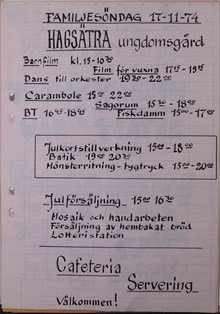 FAMILJESÖNDAG 17-11-74
HAGSÄTRA ungdomsgård
Barnfilm kl. 15-16
Film för vuxna 17⁰⁰-19¹⁵
Dans till orkester 19³⁰-22⁰⁰
Carambole 15⁰⁰ 22⁰⁰
Sagorum 15³⁰-18⁰⁰
BT 16⁰⁰-18⁰⁰ Fiskdamm 15⁰⁰-17⁰⁰
Julkortstillverkning 15⁰⁰-18⁰⁰
Batik 19⁰⁰ 20³⁰
Mönsterritning-tygtryck 15⁰⁰-20⁰⁰
Julförsäljning 15⁰⁰ 16³⁰
Mosaik och handarbeten
Försäljning av hembakat bröd
Lotteristation
Cafeteria
Servering
Välkommen!